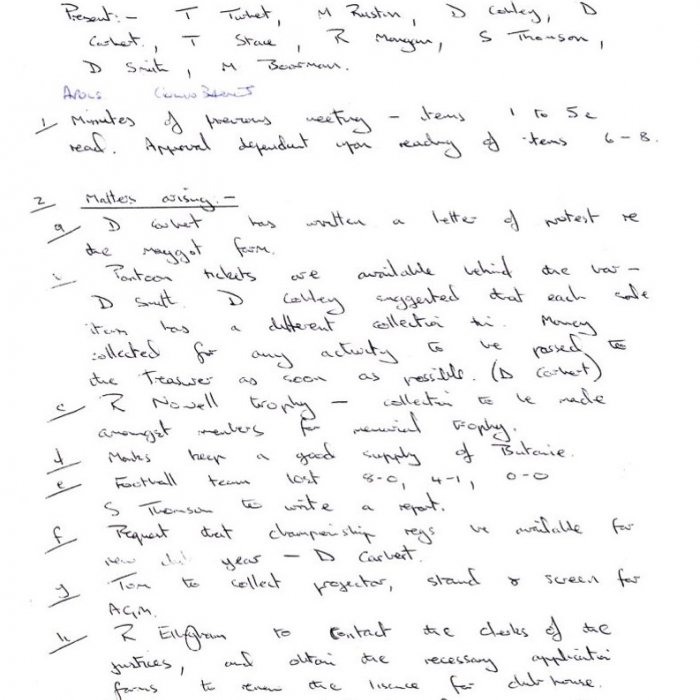 Present:- T Turbet, M Rustin, D Cobley, D
Corbet, T Stone, R Mangan, S Thomson,
D Smith, M Bearman.
1 Minutes of previous meeting - items 1 to 5c
read. Approval dependent upon reading of items 6-8.
2 Matters arising.-
a D Corbet has written a letter of protest re
the maggot farm.
Pontoon tickets are available behind the bar -
D Smith. D Cobley suggested that each sale
item has a different collection tin. Money
collected for any activity to be passed to
the Treasurer as soon as possible. (D Corbert)
c R Nowell trophy - collection to be made
amongst members for memorial trophy.
d Marks keep a good supply of Butane.
e Football team lost 8-0, 4-1, 0-0
S Thomson to write a report.
f Request that championship regs be available for
new club year - D Corbert.
g Tom to collect projector, stand & screen for
AGM.
h R to contact the clerks of the
justices, and obtain the necessary application
forms to renew the licence for club house.